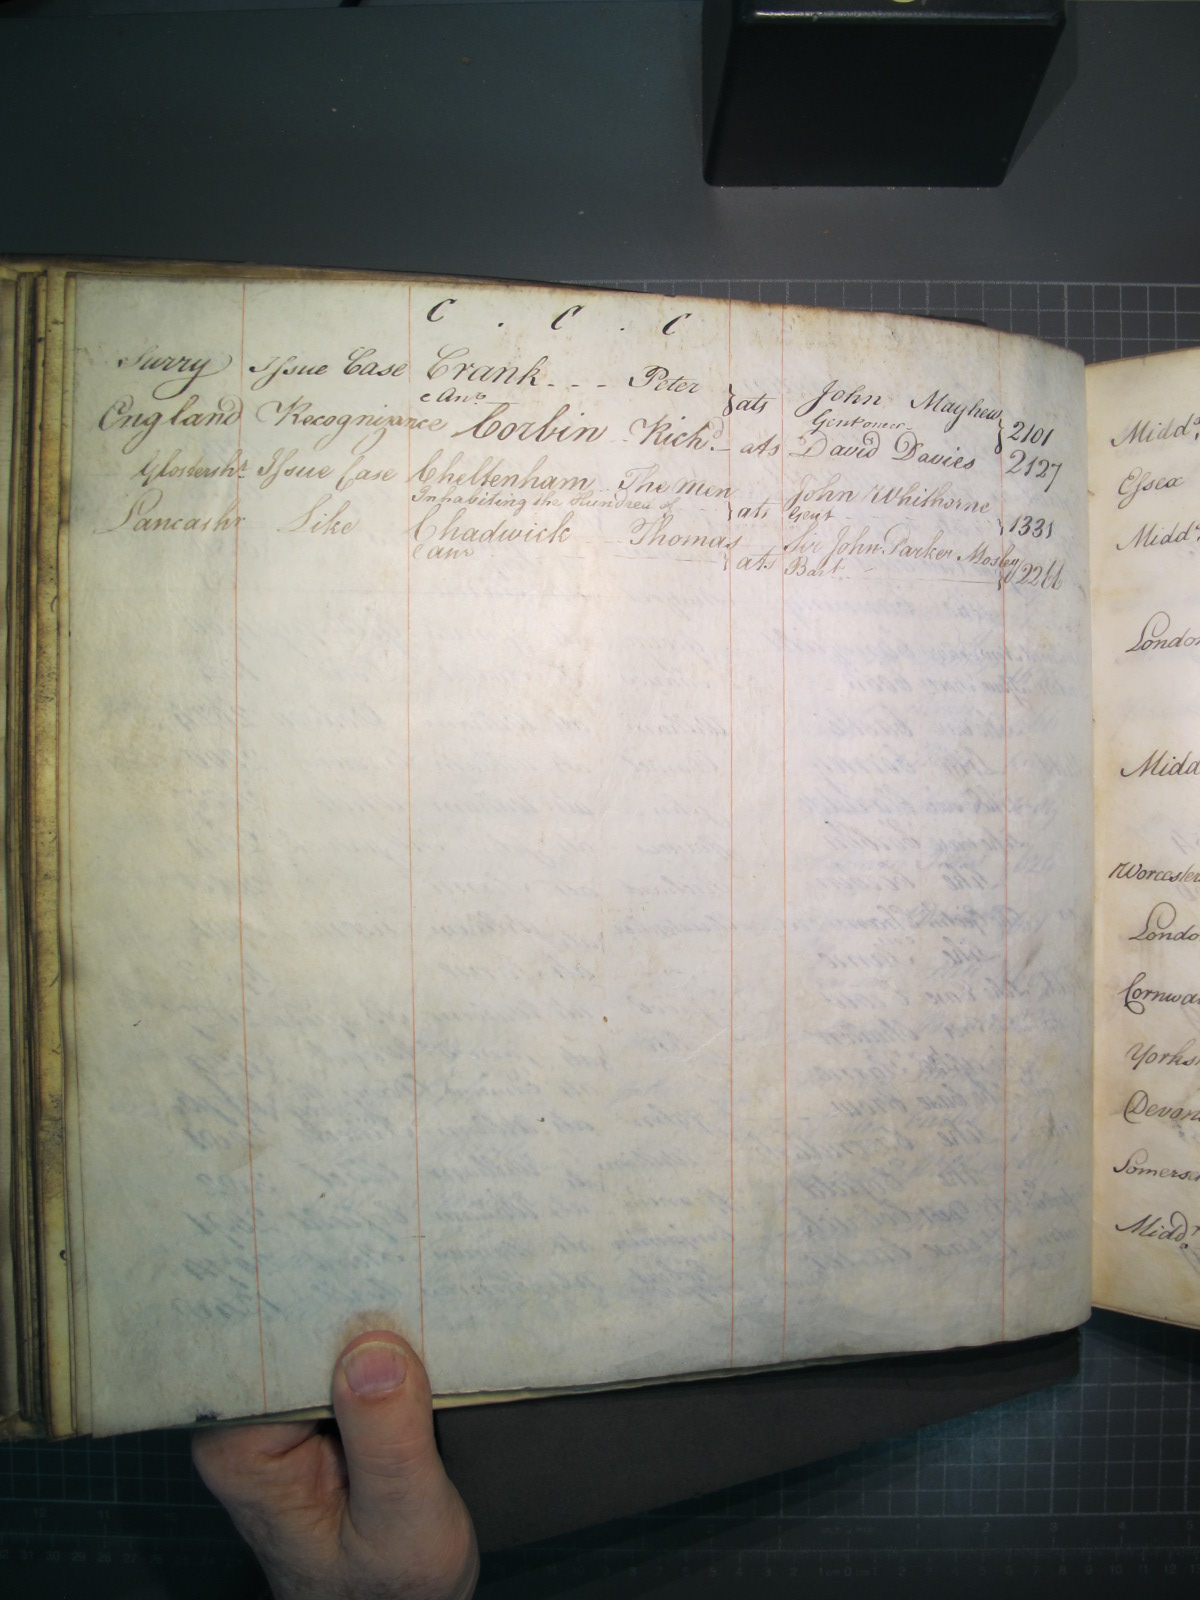 C . C . C
Surry Issue Case Crank - - - Peter } ats John Mayhew
& Anr Gent oneer } 2101
England Recognizance Corbin - Richd. - ats David Davies 2127
Glostershr. Issue Case Cheltenham The men John Whithorne
Inhabiting the Hundred of } ats Gent } 1331
Lancashr Like Chadwick Thomas Sir John Parker Mosley
& anr } ats Bart. } 2266
Middx.
Essex
Middx.
London
Midd
Worcester
Londo
Cornwa
Yorks
Devon
Somerse
Middx.